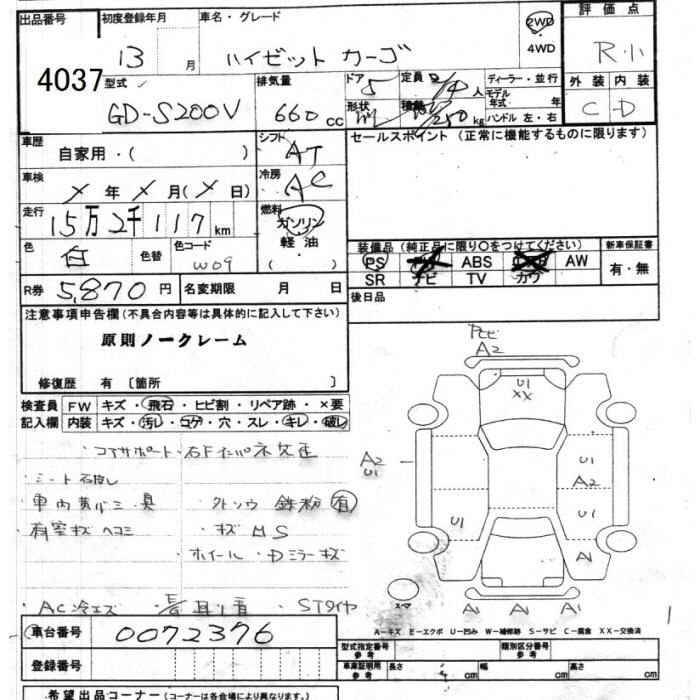 出品番号 初度登録年月 車名・グレード 評価点
4037 13 月 ハイゼット カーゴ 2WD・4WD R小
型式 排気量 ドア 定員 人 ディーラー・並行 外装 内装
GD-S200V 660 cc 5 形状 積載 250 kg モデル年式 年 ハンドル 左・右 C D
車歴 シフト セールスポイント (正常に機能するものに限ります)
自家用・( ) AT
車検 冷房
X 年 X 月(X 日) AC
走行 燃料
15万2千117 km ガソリン
色 色替 色コード 軽油 装備品 (純正品に限り〇をつけてください) 新車保証書
白 W09 ( ) PS ABS AW 有・無
SR ナビ TV カワ
R券 5,870 円 名変期限 月 日 後日品
注意事項申告欄 (不具合内容等は具体的に記入して下さい)
原則ノークレーム
修復歴 有 〔箇所 〕
検査員 FW キズ・飛石・ヒビ割・リペア跡・×要
記入欄 内装 キズ・汚レ・コゲ・穴・スレ・キレ・破レ
A2
U1
XX
A2
U1
U1
A2
U1
U1
A1
A1 A1 A1
・コアサポート・右Fインパネ交正
・シート破レ
・車内黄バミ・臭 ・外ソウ 鉄粉有
・荷室キズヘコミ ・キズ MS
・ホイール・Dミラーキズ
・AC冷エズ ・長耳リ音 ・STタイヤ
スペア
A-キズ E-エクボ U-凹み W-補修跡 S-サビ C-腐食 XX-交換済
車台番号 0072376
登録番号
型式指定番号 参考 類別区分番号 参考
車庫証明用 参考 長さ cm 幅 cm 高さ cm
希望出品コーナー (コーナーは各会場により異なります。)